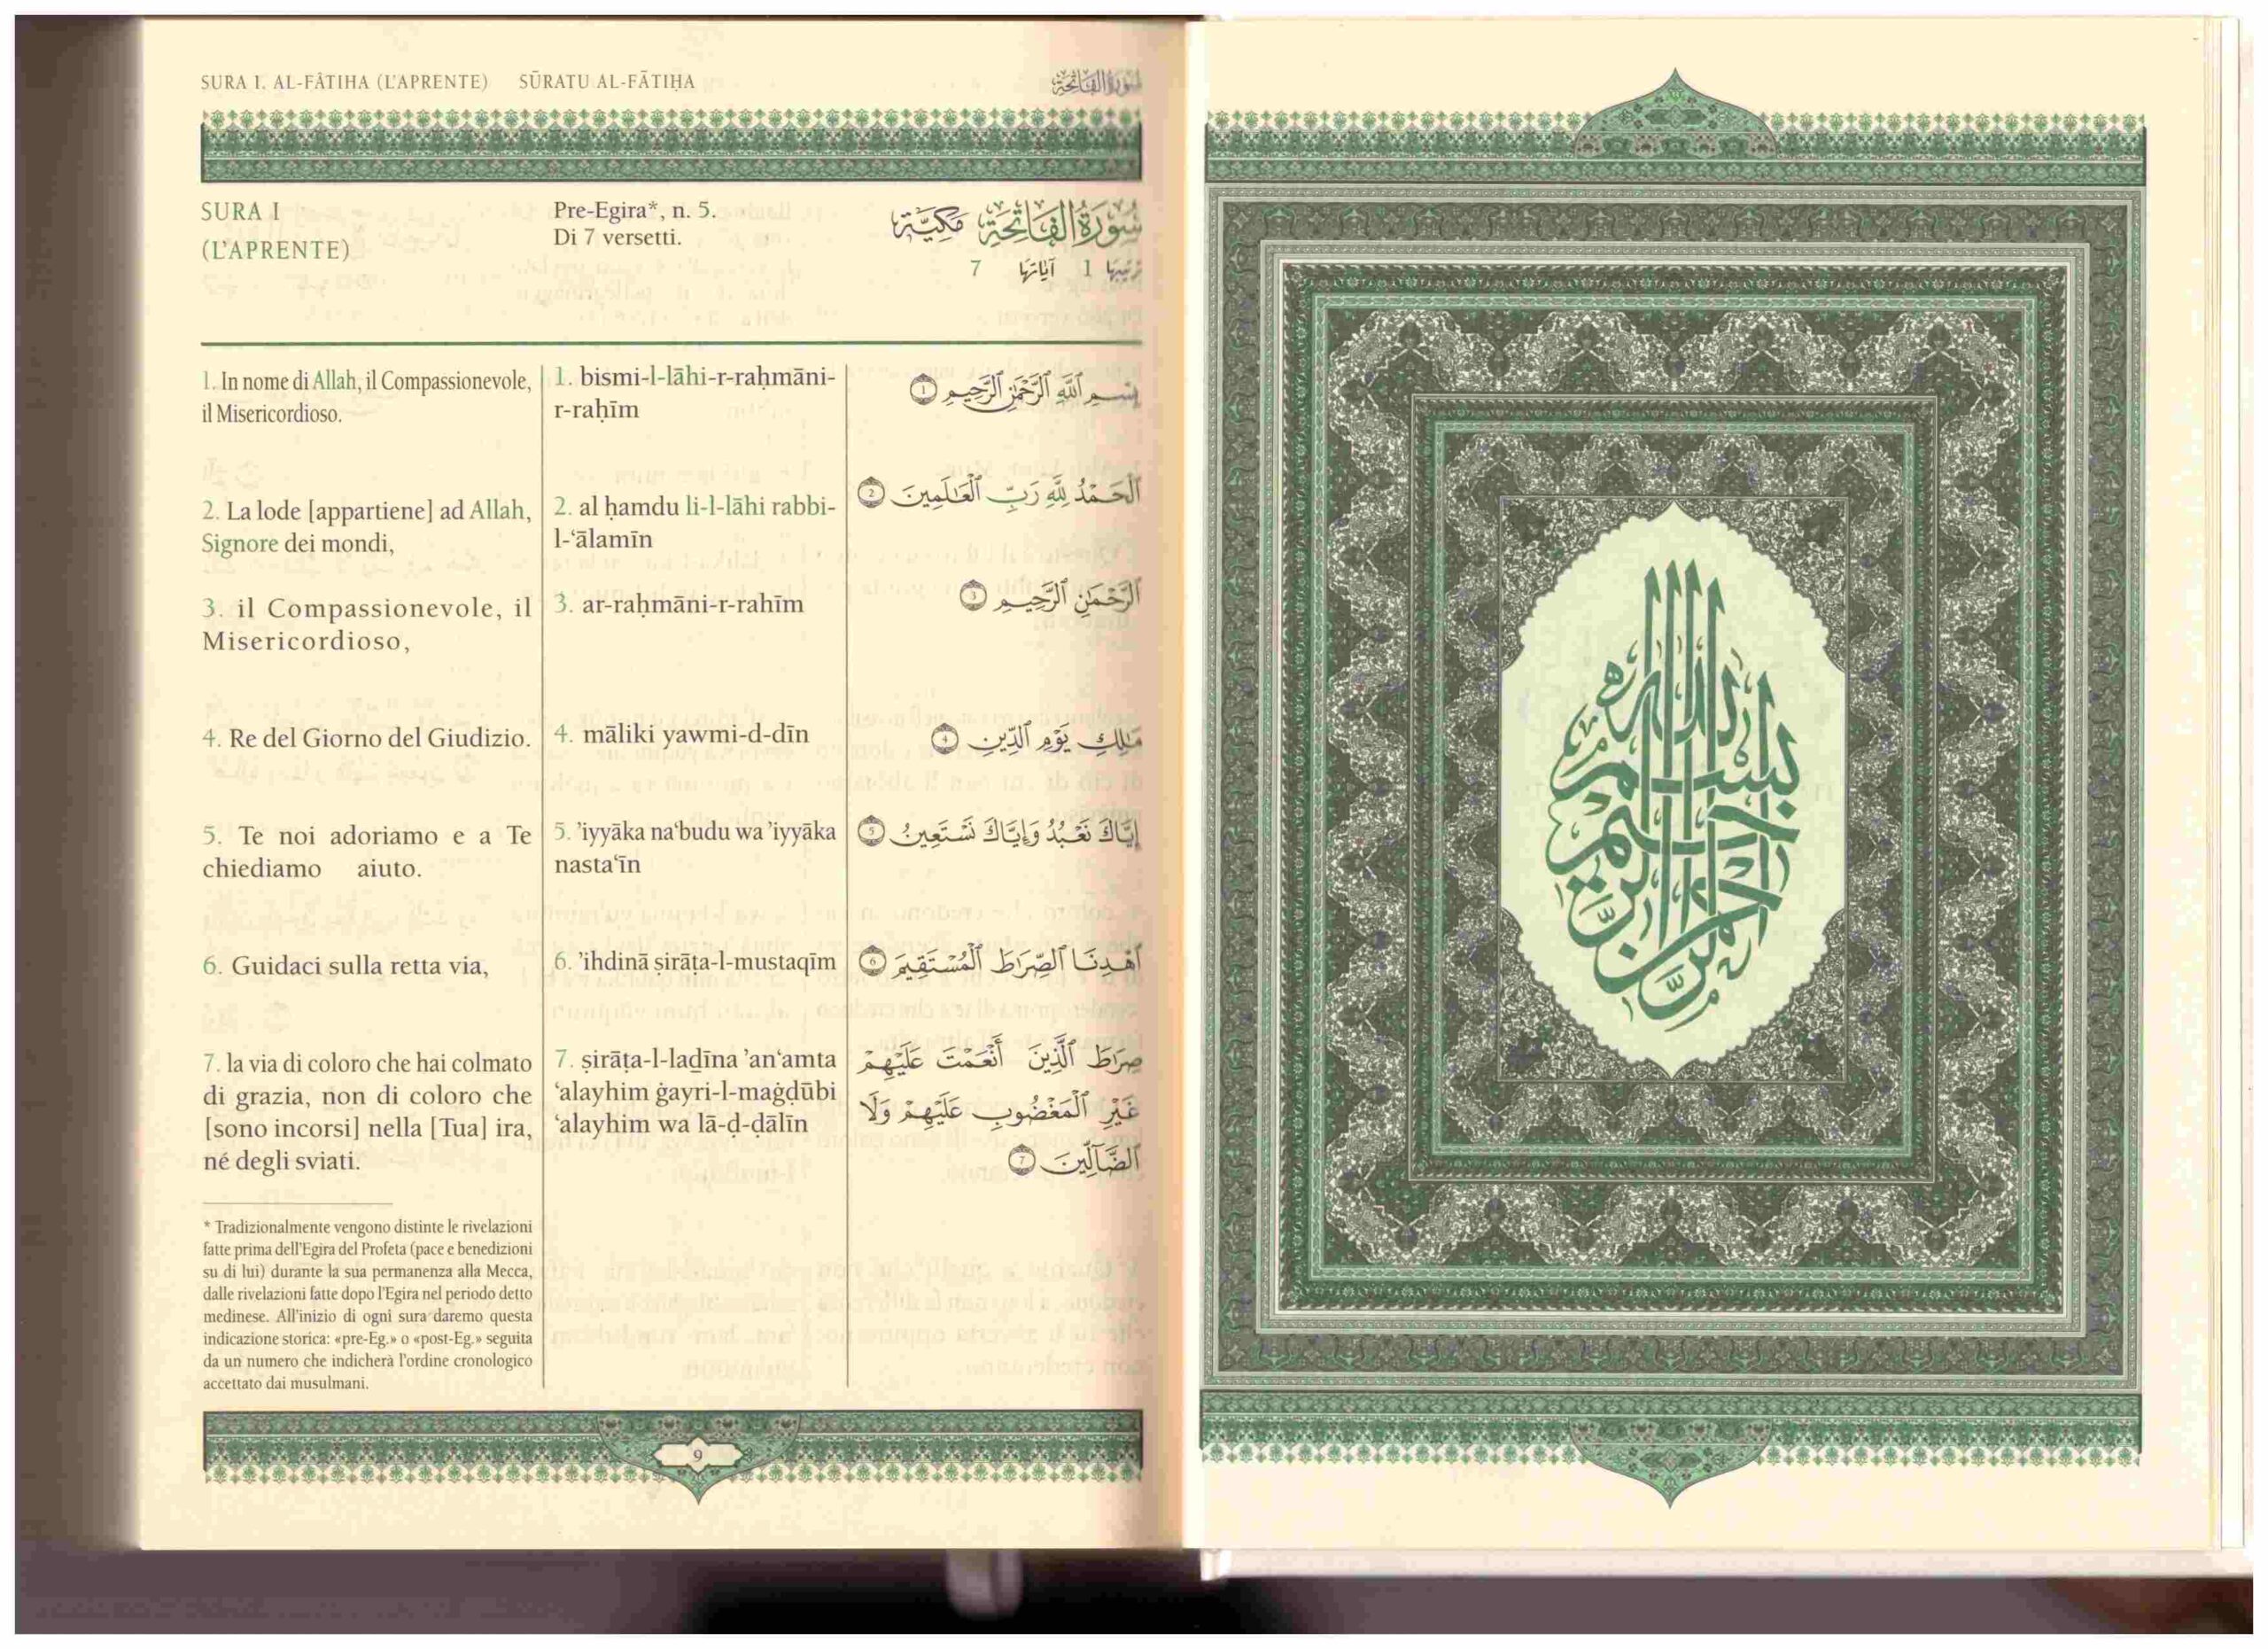 SURA I. AL-FÂTIHA (L'APRENTE) SŪRATU AL-FĀTIḤA سُورَةُ الفَاتِحَة
SURA I
(L'APRENTE)
Pre-Egira*, n. 5.
Di 7 versetti.
سُورَةُ الفَاتِحَة مَكِيَّة
تَرْتِيبُهَا 1 آيَاتُهَا 7
1. In nome di Allah, il Compassionevole,
il Misericordioso.
2. La lode [appartiene] ad Allah,
Signore dei mondi,
3. il Compassionevole, il
Misericordioso,
4. Re del Giorno del Giudizio.
5. Te noi adoriamo e a Te
chiediamo aiuto.
6. Guidaci sulla retta via,
7. la via di coloro che hai colmato
di grazia, non di coloro che
[sono incorsi] nella [Tua] ira,
né degli sviati.
* Tradizionalmente vengono distinte le rivelazioni
fatte prima dell'Egira del Profeta (pace e benedizioni
su di lui) durante la sua permanenza alla Mecca,
dalle rivelazioni fatte dopo l'Egira nel periodo detto
medinese. All'inizio di ogni sura daremo questa
indicazione storica: «pre-Eg.» o «post-Eg.» seguita
da un numero che indicherà l'ordine cronologico
accettato dai musulmani.
1. bismi-l-lāhi-r-raḥmāni-
r-raḥīm
2. al ḥamdu li-l-lāhi rabbi-
l-‘ālamīn
3. ar-raḥmāni-r-rahīm
4. māliki yawmi-d-dīn
5. ’iyyāka na‘budu wa ’iyyāka
nasta‘īn
6. ’ihdinā ṣirāṭa-l-mustaqīm
7. ṣirāṭa-l-laḏīna ’an‘amta
‘alayhim ġayri-l-maġḍūbi
‘alayhim wa lā-ḍ-dālīn
بِسْمِ ٱللَّهِ ٱلرَّحْمَٰنِ ٱلرَّحِيمِ ١
ٱلْحَمْدُ لِلَّهِ رَبِّ ٱلْعَٰلَمِينَ ٢
ٱلرَّحْمَٰنِ ٱلرَّحِيمِ ٣
مَٰلِكِ يَوْمِ ٱلدِّينِ ٤
إِيَّاكَ نَعْبُدُ وَإِيَّاكَ نَسْتَعِينُ ٥
ٱهْدِنَا ٱلصِّرَٰطَ ٱلْمُسْتَقِيمَ ٦
صِرَٰطَ ٱلَّذِينَ أَنْعَمْتَ عَلَيْهِمْ
غَيْرِ ٱلْمَغْضُوبِ عَلَيْهِمْ وَلَا
ٱلضَّآلِّينَ ٧
9
بسم الله الرحمن الرحيم